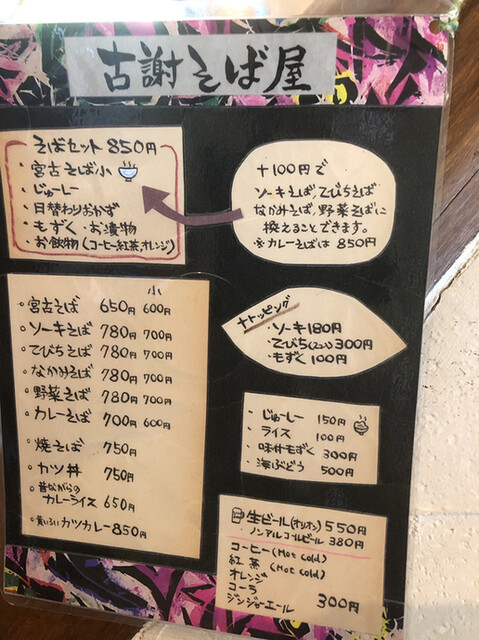 古謝そば屋
そばセット 850円
・宮古そば小
・じゅーしー
・日替わりおかず
・もずく・お漬物
・お飲物(コーヒー紅茶オレンジ)
+100円で
ソーキそば,てびちそば
なかみそば,野菜そばに
換えることできます。
※カレーそばは 850円
小
宮古そば 650円 600円
ソーキそば 780円 700円
てびちそば 780円 700円
なかみそば 780円 700円
野菜そば 780円 700円
カレーそば 700円 600円
焼そば 750円
カツ丼 750円
昔ながらの
カレーライス 650円
黄いろいカツカレー850円
+トッピング
・ソーキ180円
・てびち 300円
・もずく 100円
・じゅーしー 150円
・ライス 100円
・味付もずく 300円
・海ぶどう 500円
生ビール(オリオン) 550円
ノンアルコールビール 380円
コーヒー(Hot Cold)
紅茶 (Hot Cold)
オレンジ
コーラ
ジンジャーエール 300円